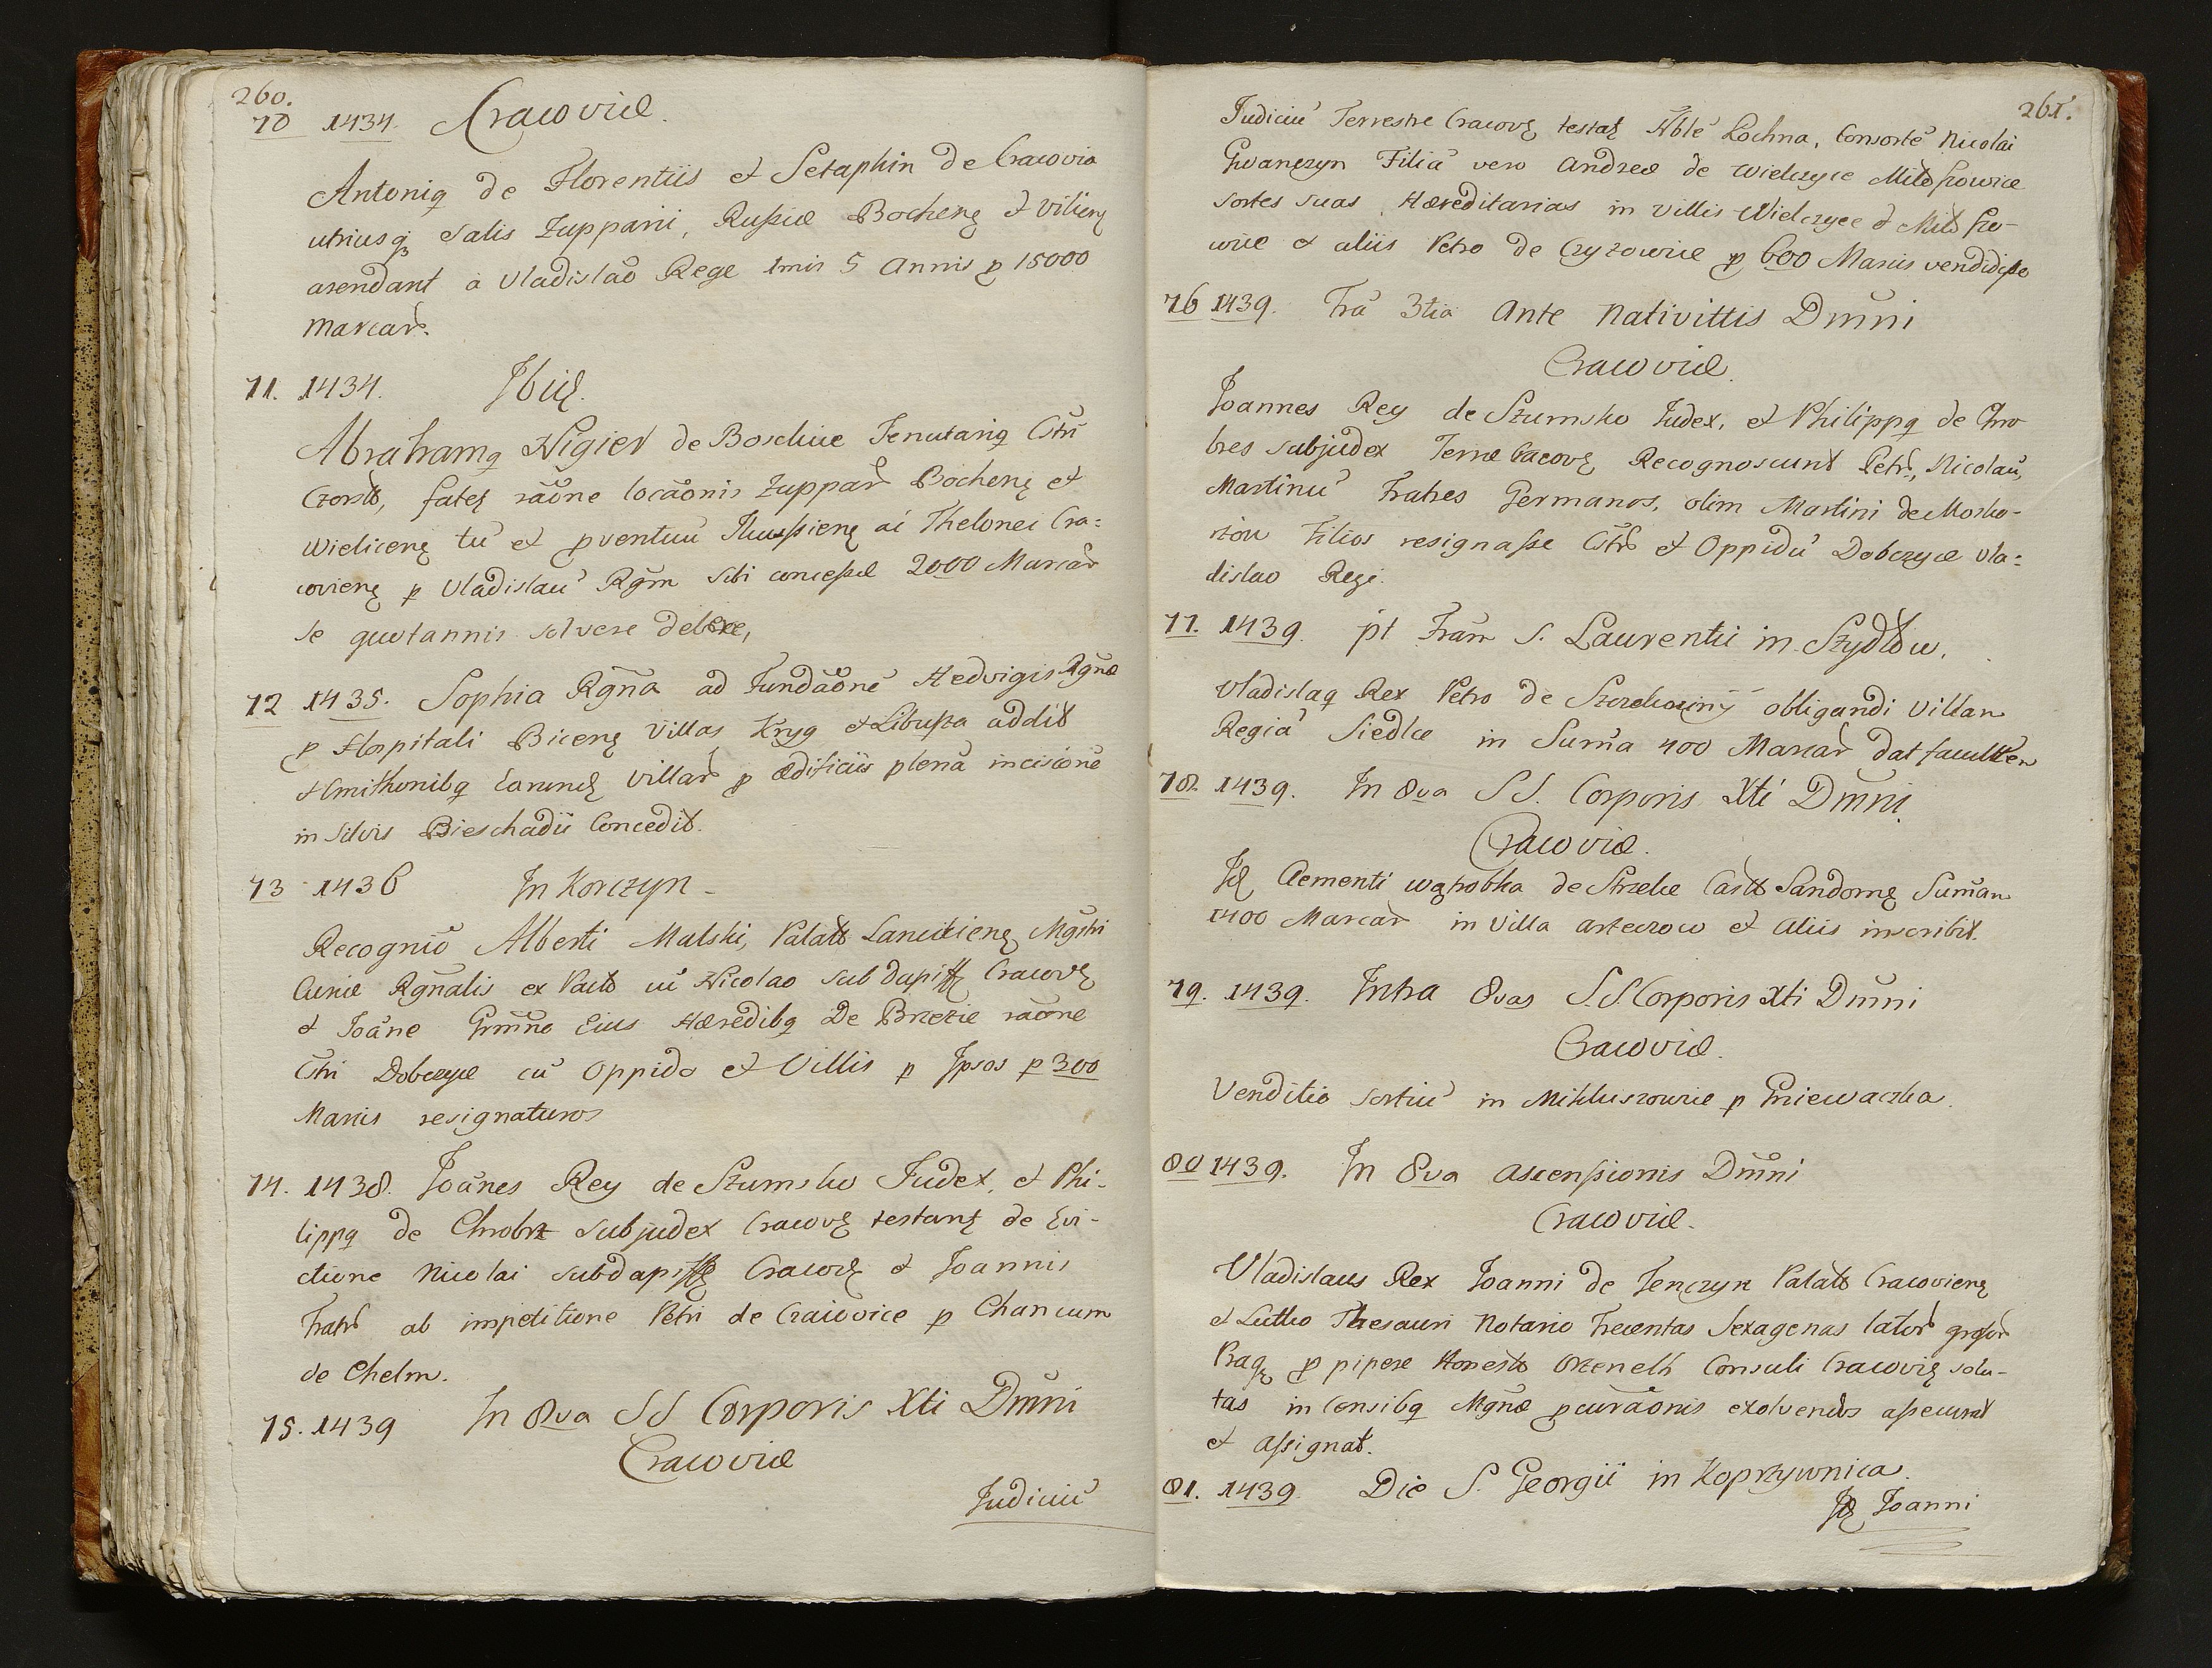 260.
70 1434. Cracoviæ.
Antoniq de Florentiis et Seraphin de Cracovia
utriusq salis Zupparii, Russiæ Bochenę et Viliens
arendant à Vladislao Rege 1mis 5 Annis p 15000
Marcar.
71. 1434. Ibid.
Abrahamq Nigier de Boschiie Tenutariq Cstri
Czorszt, fatet raone locaonis Zuppar Bochenę et
Wielicenę tu et pventuu Russienę ai Thelonei Cra=
covienę p Vladislau Rgm sibi concessæ 2000 Marcar
se quotannis solvere debere,
72 1435. Sophia Rgna ad Fundaone Hedvigis Rgnæ
p Hospitali Bicenę Villas Kryg et Libusza addit
Hmithonibq Earund Villar p ædificiis plena incisione
in Silvis Bieschadii Concedit.
73 1436 In Korczyn.
Recognio Alberti Malski, Palatt Lancicienę Mgtri
Curiæ Rgnalis ex Pacto cu Nicolao subdapif Cracov
et Joane Grmno Eius Hæredibq de Brzezie raone
Cstri Dobczyce cu Oppido et Villis p Ipsos p 300
Marcis resignaturos
74. 1438. Joanes Rey de Szumsko Judex, et Phi-
lippq de Chrobrz subjudex Cracov testant de Evi-
ctione Nicolai subdapif Cracov et Joannis
Fratr ab impetitione Petri de Craiovice p Chancum
de Chelm.
75. 1439 In 8va SS Corporis Xti Dmni
Cracoviæ
Judiciu
261.
Judiciu Terrestre Cracov testat Nble Lochna, Consorte Nicolai
Gwanczyn Filia vero Andreæ de Wielczyce Miloszowice
sortes suas Hæreditarias in Villis Wielczyce et Miloszo-
wice et aliis Petro de Czyzowice p 600 Marcis vendidisse
76 1439. Fra 3tia Ante Nativittis Dmni
Cracoviæ.
Joannes Rey de Szumsko Judex, et Philippq de Chro
bres subjudex Terræ Cracov Recognoscunt Petr, Nicolau,
Martinu Fratres Germanos, olim Martini de Mosko-
rzow Filios resignasse Cstr et Oppidu Dobczyce Vla=
dislao Regi.
77. 1439. pt Fram S. Laurentii in Szydlow.
Vladislaq Rex Petro de Szczekociny obligandi Villam
Regia Siedlce in Suma 400 Marcar dat facultten
78. 1439. In 8va SS. Corporis Xti Dmni.
Cracoviæ.
Id Clementi Wątrobka de Strzelce Castt Sandomę Suman
1400 Marcar in Villa Arteczow et Aliis inscribit.
79. 1439. Intra 8vas S.S. Corporis Xti Dmni
Cracoviæ.
Venditio sortiu in Mikluszowice p Gniewaczka.
80 1439. In 8va Ascensionis Dmni
Cracoviæ.
Vladislaus Rex Joanni de Tenczyn Palatt Cracovienę
et Lutko Thesauri Notario Trecentas Sexagenas lator grosor
Prag p pipere Honesto Orzenelh Consuli Cracovię solu-
tas in Censibq Mgnæ pcuraonis exolvendos assecurat
et assignat.
81. 1439. Die S. Georgii in Koprzywnica.
Id Joanni